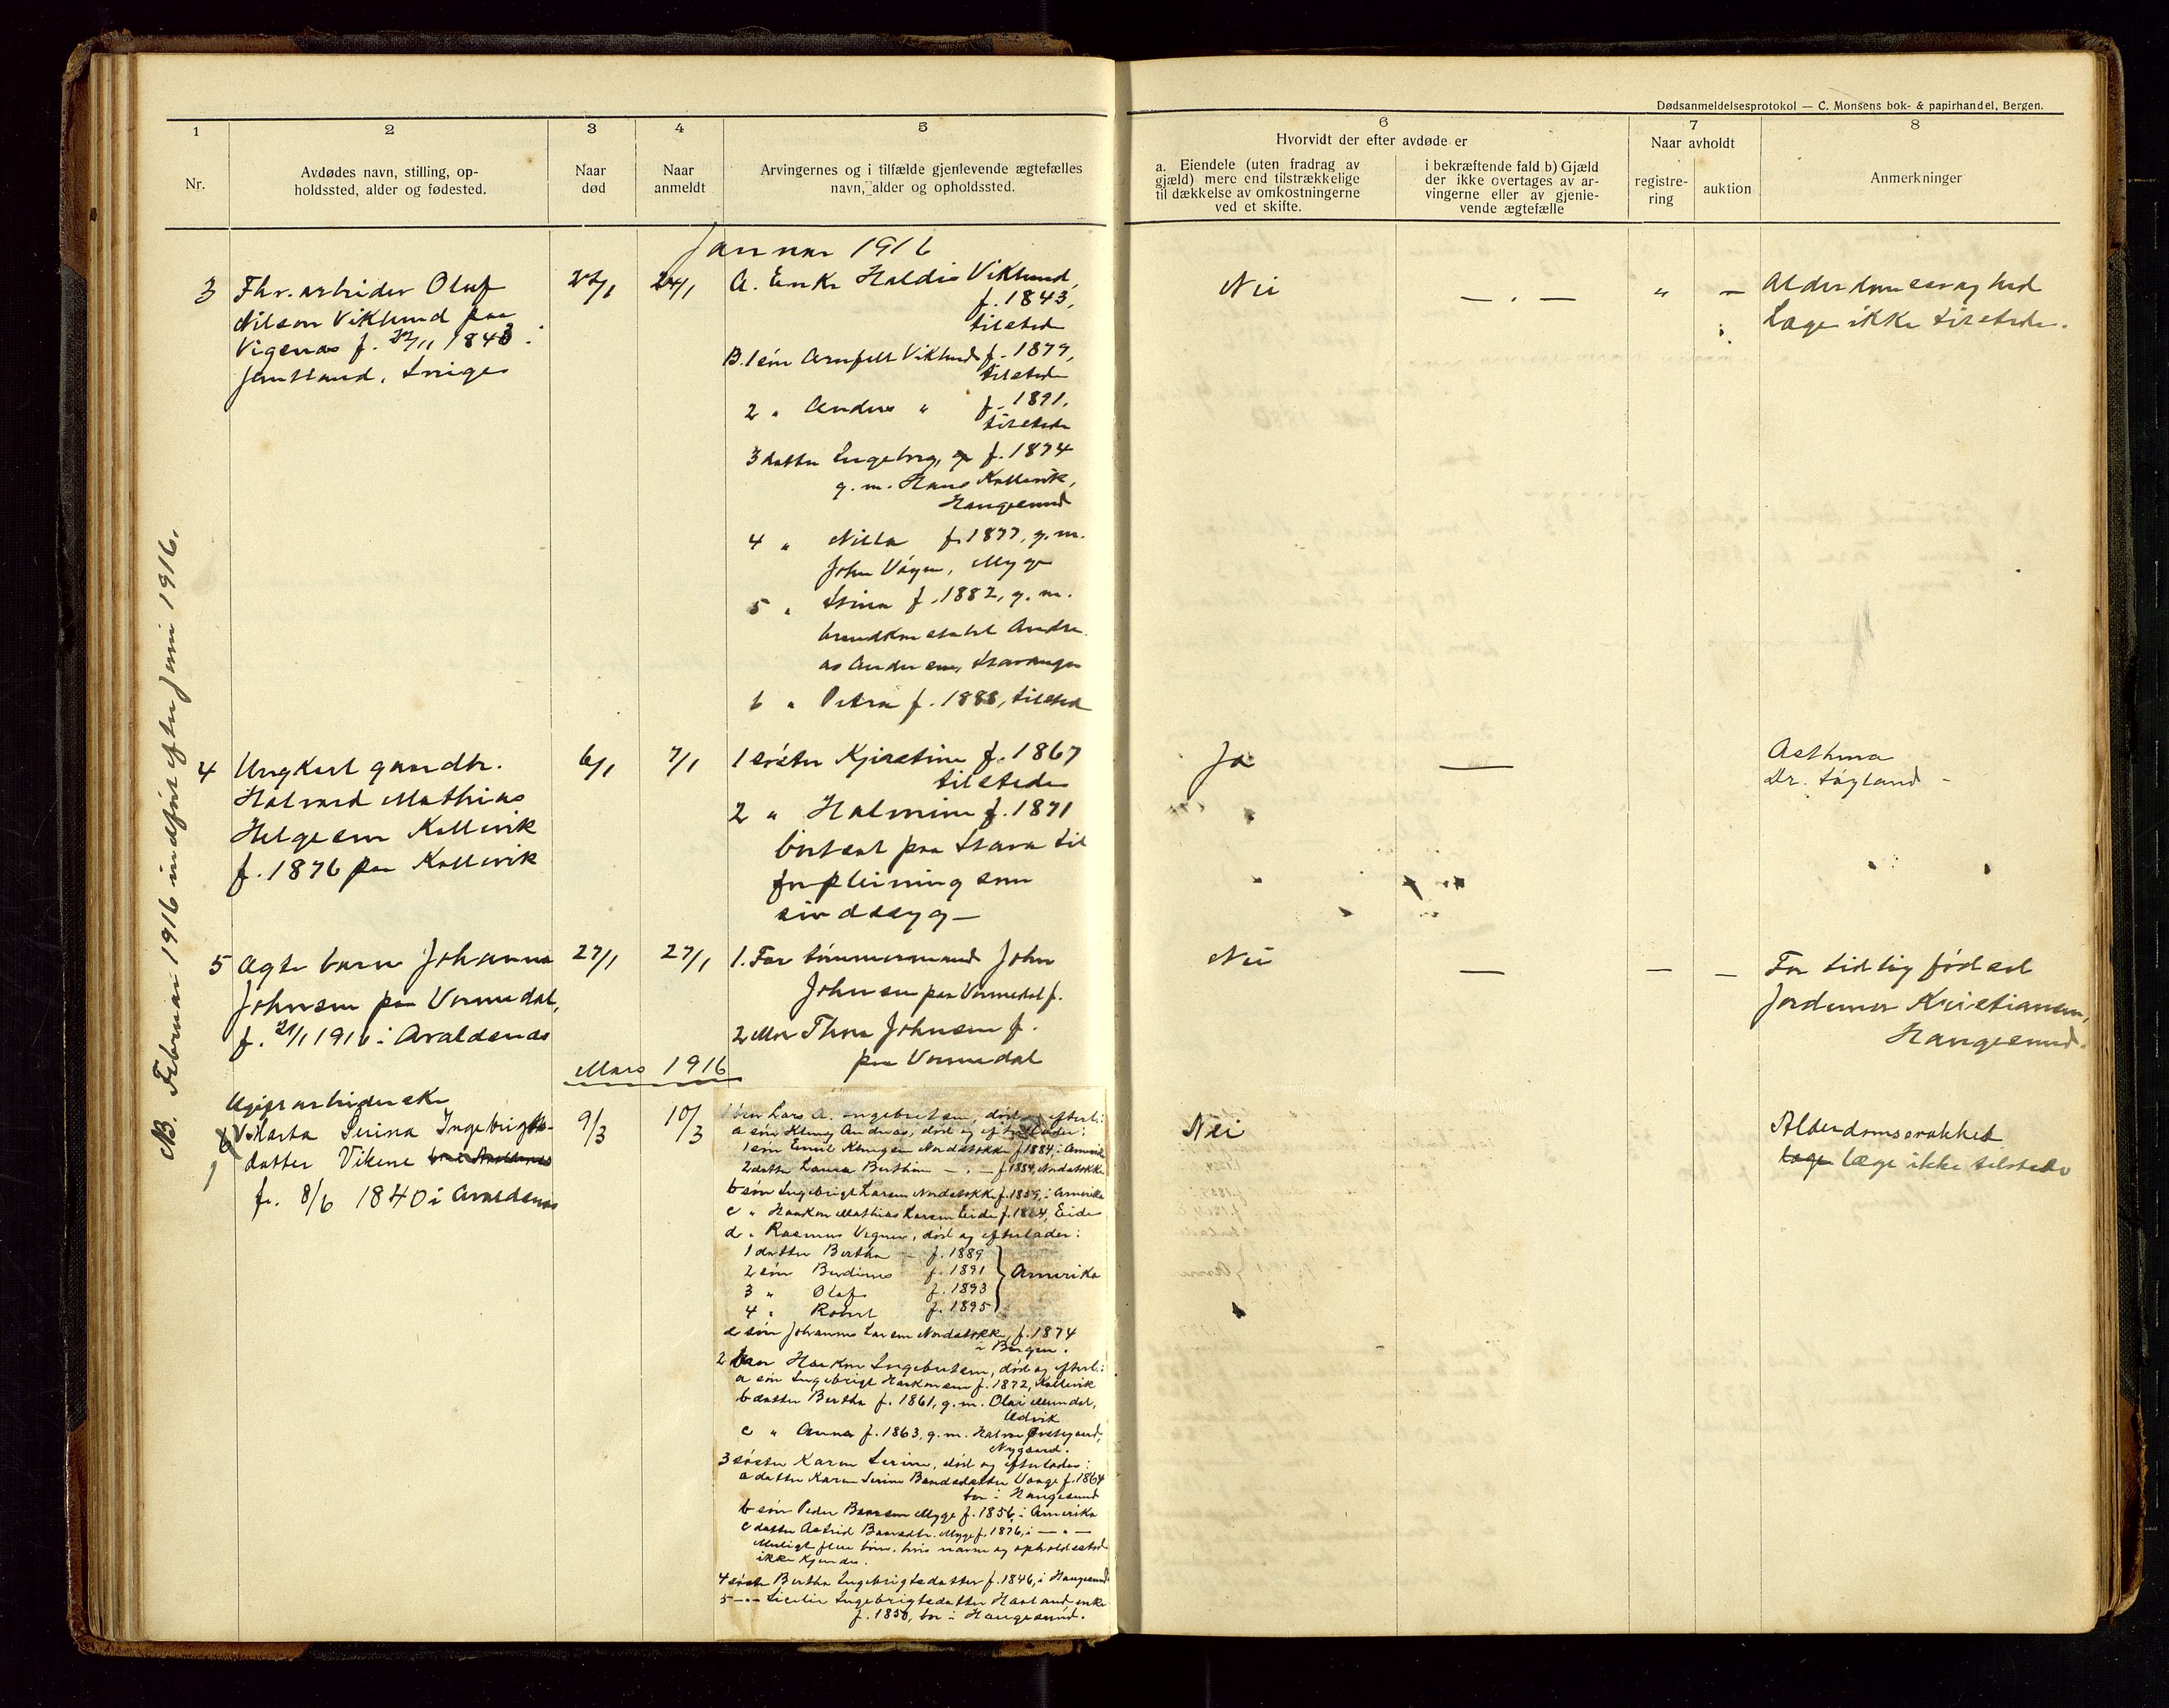 Dødsanmeldelsesprotokol — C. Monsens bok- & papirhandel, Bergen.
1
2
3
4
5
6
7
8
Nr.
Avdødes navn, stilling, op-
holdssted, alder og fødested.
Naar
død
Naar
anmeldt
Arvingernes og i tilfælde gjenlevende ægtefælles
navn, alder og opholdssted.
Hvorvidt der efter avdøde er
a. Eiendele (uten fradrag av
gjæld) mere end tilstrækkelige
til dækkelse av omkostningerne
ved et skifte.
i bekræftende fald b) Gjæld
der ikke overtages av ar-
vingerne eller av gjenle-
vende ægtefælle
Naar avholdt
registre-
ring
auktion
Anmerkninger
NB. Februar 1916 indført efter juni 1916.
Januar 1916
3 Fhv. arbeider Oluf
Nilson Viklund paa
Vigenes f. 1843 i
Jemtland, Sverige
24/1
A. Enke Haldis Viklund,
f. 1843,
tilstede
B. 1 søn Arnfelt Viklund f. 1879,
tilstede
2 " Anders " f. 1891,
tilstede
3 datter Ingeborg, f. 1874
g. m. Hans Kallevik,
Haugesund
4 " Nilla f. 1877, g. m.
John Vågen, Mygge
5 " Stina f. 1882, g. m.
brandkonstabel Andre-
as Andersen, Stavanger
6 " Petra f. 1888, tilsted
Nei
— . —
" —
Alderdomssvaghed
Læge ikke tilstede.
4 Ungkarl gaardbr.
Halvard Mathias
Helgesen Kallevik
f. 1876 paa Kallevik
6/1
7/1
1 søster Kjirstine f. 1867
tilstede
2 " Halmine f. 1871
bortsat paa Stava til
forpleining som
sindssyg —
Ja
—
Asthma
Dr. Søyland —
5 Ægte barn Johanna
Johnsen paa Vormedal,
f. 21/1 1916 i Avaldsnes
27/1
27/1
1. Far tømmermand John
Johnsen paa Vormedal f.
2 Mor Thora Johnsen f.
paa Vormedal
Nei
—
— —
For tidlig fødsel
Jordemor Kristiansen,
Haugesund.
Mars 1916
6 Ugift arbeiderske
Marta Serina Ingebrigts-
datter Vikene
f. 8/6 1840 i Avaldsnes
9/3
10/3
1 bror Lars A. Ingebretsen, død og efterl.:
a søn Kleng Andreas, død og efterlader:
1 søn Emil Klengsen Nordstokke f. 1884, i Amerika
2 datter Laura Berthine — " — f. 1889, Nordstokke
b søn Ingebrigt Larsen Nordstokke f. 1859, i Amerika
c " Haakon Mathias Larsen Eide f. 1864, Eide
d " Rasmus Vegner, død og efterlader:
1 datter Bertha f. 1889
2 søn Berdines f. 1891
3 " Olaf f. 1893
4 " Robert f. 1895
Amerika
e søn Johannes Larsen Nordstokke, f. 1874
i Bergen.
2 bror Haakon Ingebretsen, død og efterl.:
a søn Ingebrigt Haakonsen f. 1872, Kallevik
b datter Bertha f. 1861, g. m. Olai Mundal,
Udvik
c " Anna f. 1863, g. m. Halvor Østergaard,
Nygaard.
3 søster Karen Serine, død og efterlader:
a datter Karen Serine Baardsdatter Vaage f. 1864
bor i Haugesund
b søn Peder Baardsen Mygge f. 1856, i Amerika
c datter Astrid Baardsdtr. Mygge f. 1876, i — " —
Muligt flere børn, hvis navne og opholdssted
ikke kjendes.
4 søster Bertha Ingebrigtsdatter f. 1846, i Haugesund
5 — " — Sicilie Ingebrigtsdatter Haaland, enke
f. 1850, bor i Haugesund.
Nei
Alderdomssvakhet
læge ikke tilstede